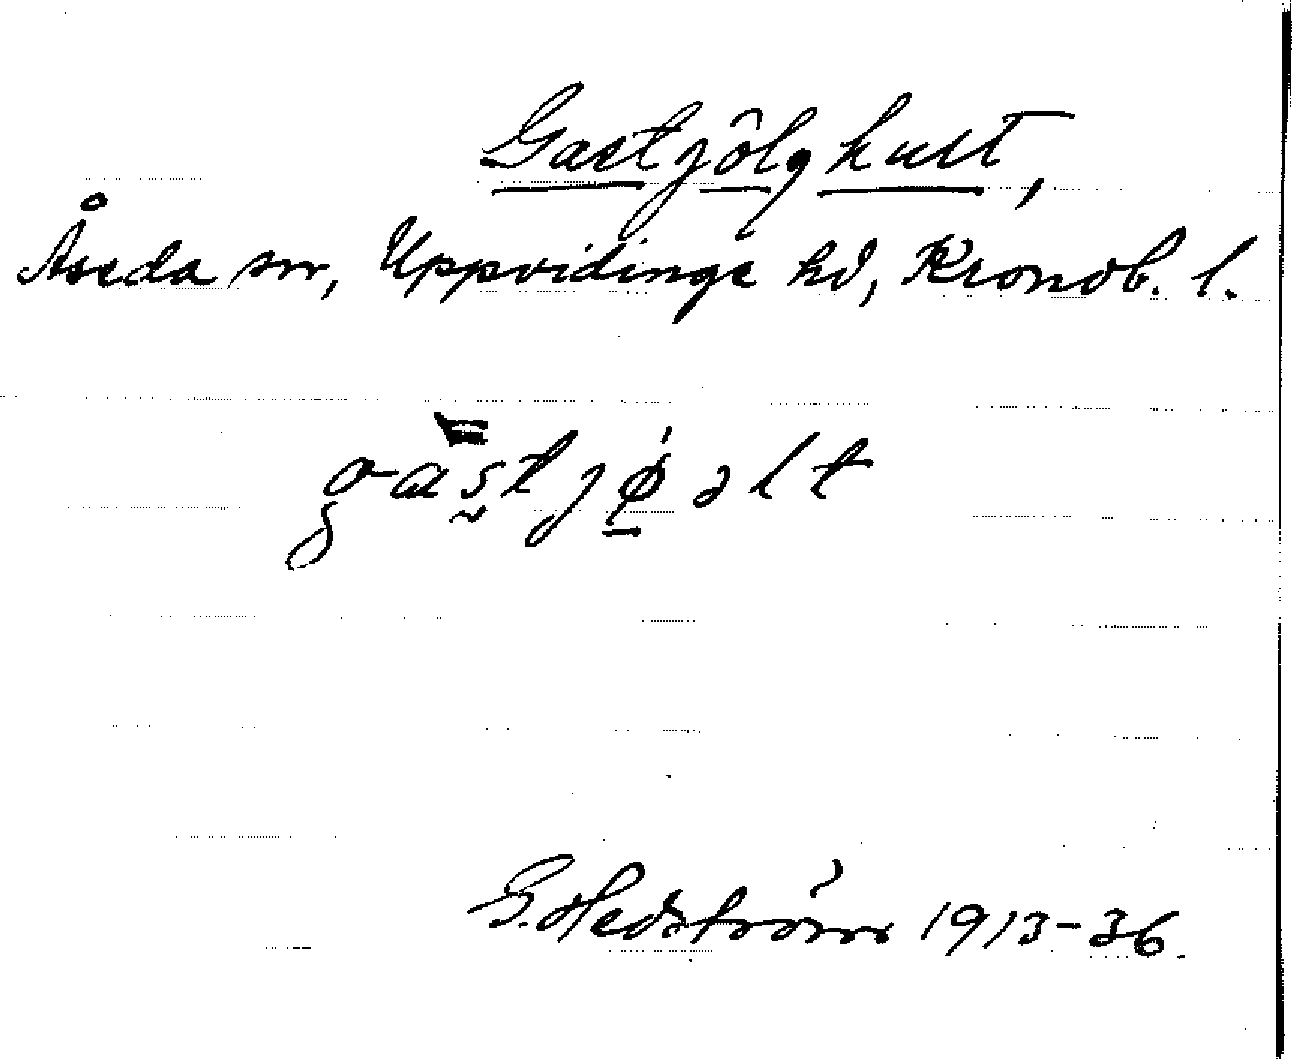 Gastjölghult,
Åseda sn, Uppvidinge hd, Kronob. l.
gastjøəlt
G. Hedström 1913-36.